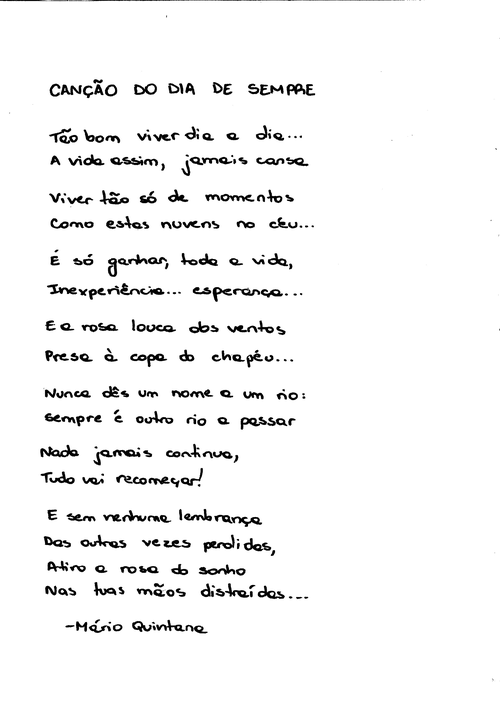 CANÇÃO DO DIA DE SEMPRE
Tão bom viver dia a dia...
A vida assim, jamais cansa
Viver tão só de momentos
Como estas nuvens no céu...
É só ganhar, toda a vida,
Inexperiência... esperança...
E a rosa louca dos ventos
Presa à copa do chapéu...
Nunca dês um nome a um rio:
Sempre é outro rio a passar
Nada jamais continua,
Tudo vai recomeçar!
E sem nenhuma lembrança
Das outras vezes perdidas,
Atiro a rosa do sonho
Nas tuas mãos distraídas...
-Mário Quintana